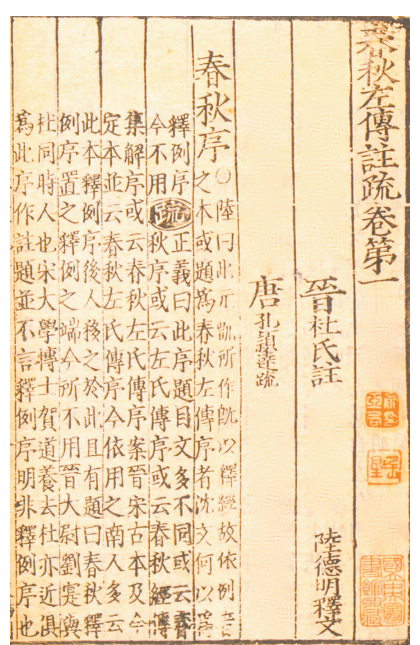 春秋左傳註疏卷第一
晉杜氏註 陸德明釋文
唐孔穎達疏
春秋序 ○陸曰此元凱所作旣以釋經故依例音
之本或題爲春秋左傳序者沈文何以爲
釋例序
今不用
疏
正義曰此序題目文多不同或云春
秋序或云左氏傳序或云春秋經傳
集解序或云春秋左氏傳序案晉宋古本及今
定本並云春秋左氏傳序今依用之南人多云
此本釋例序後人移之於此且有題曰春秋釋
例序置之釋例之端今所不用晉大尉劉寔與
杜同時人也宋大學博士賀道養去杜亦近俱
爲此序作註題並不言釋例序明非釋例序也